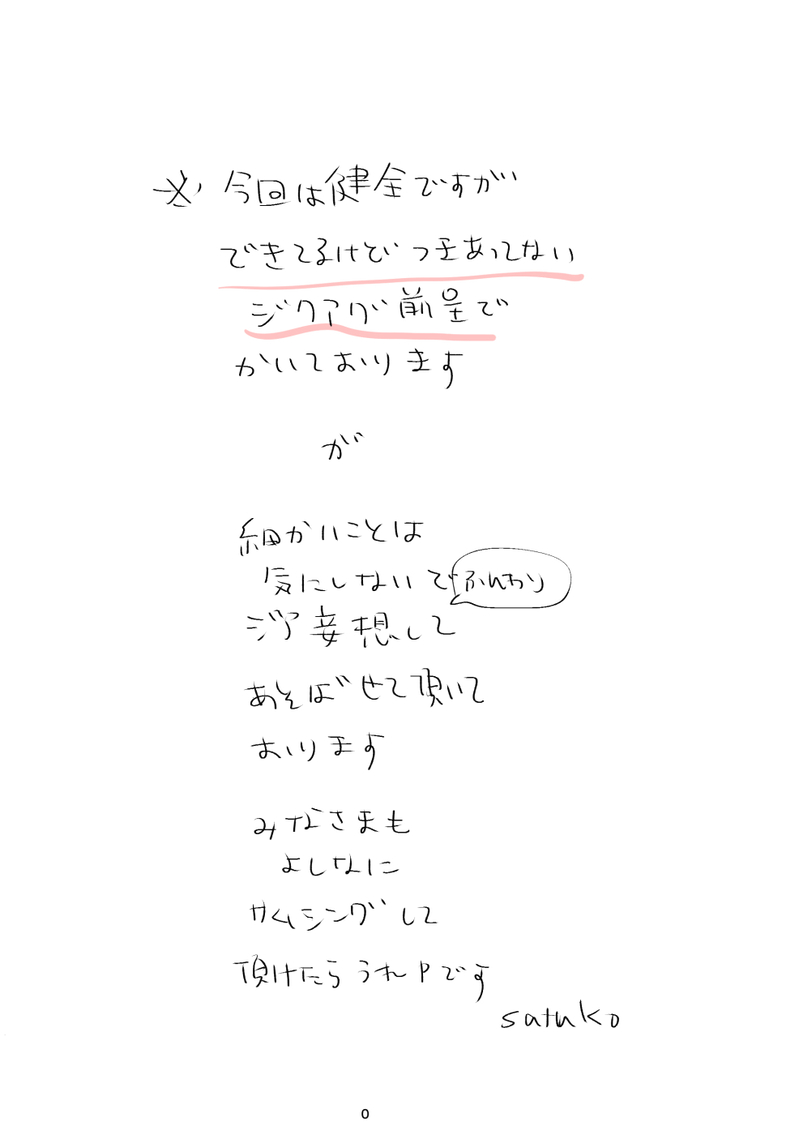 ※ 今回は健全ですが
できてるけどつきあってない
ジクアグ前呈で
かいております
が
細かいことは
気にしないでふんわり
ジア妄想して
あそばせて頂いて
おります
みなさまも
よしなに
サムシングして
頂けたらうれPです
satuko
0